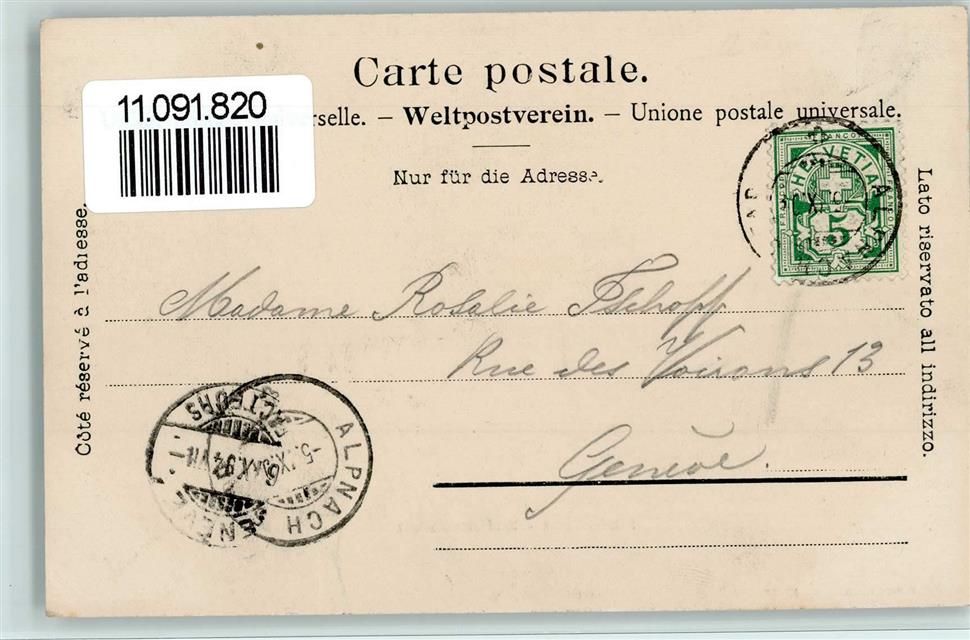 Carte postale.
11.091.820
rselle. – Weltpostverein. – Unione postale universale.
Nur für die Adresse.
HELVETIA
FRANCO
FRANCO
FRANCO
5
Côté réservé à l'adresse.
Lato riservato all indirizzo.
Madame Rosalie Tschopp
Rue des Voirons 13
Genève.
ALPNACH
GENÈVE
FACTEURS